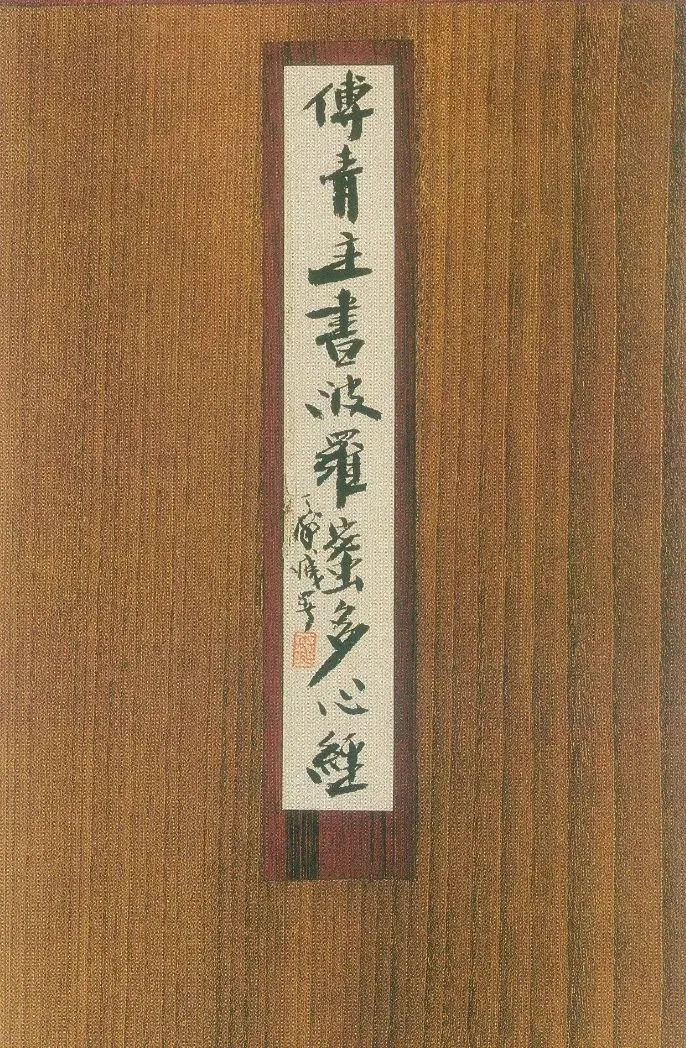 傅青主書波羅蜜多心經